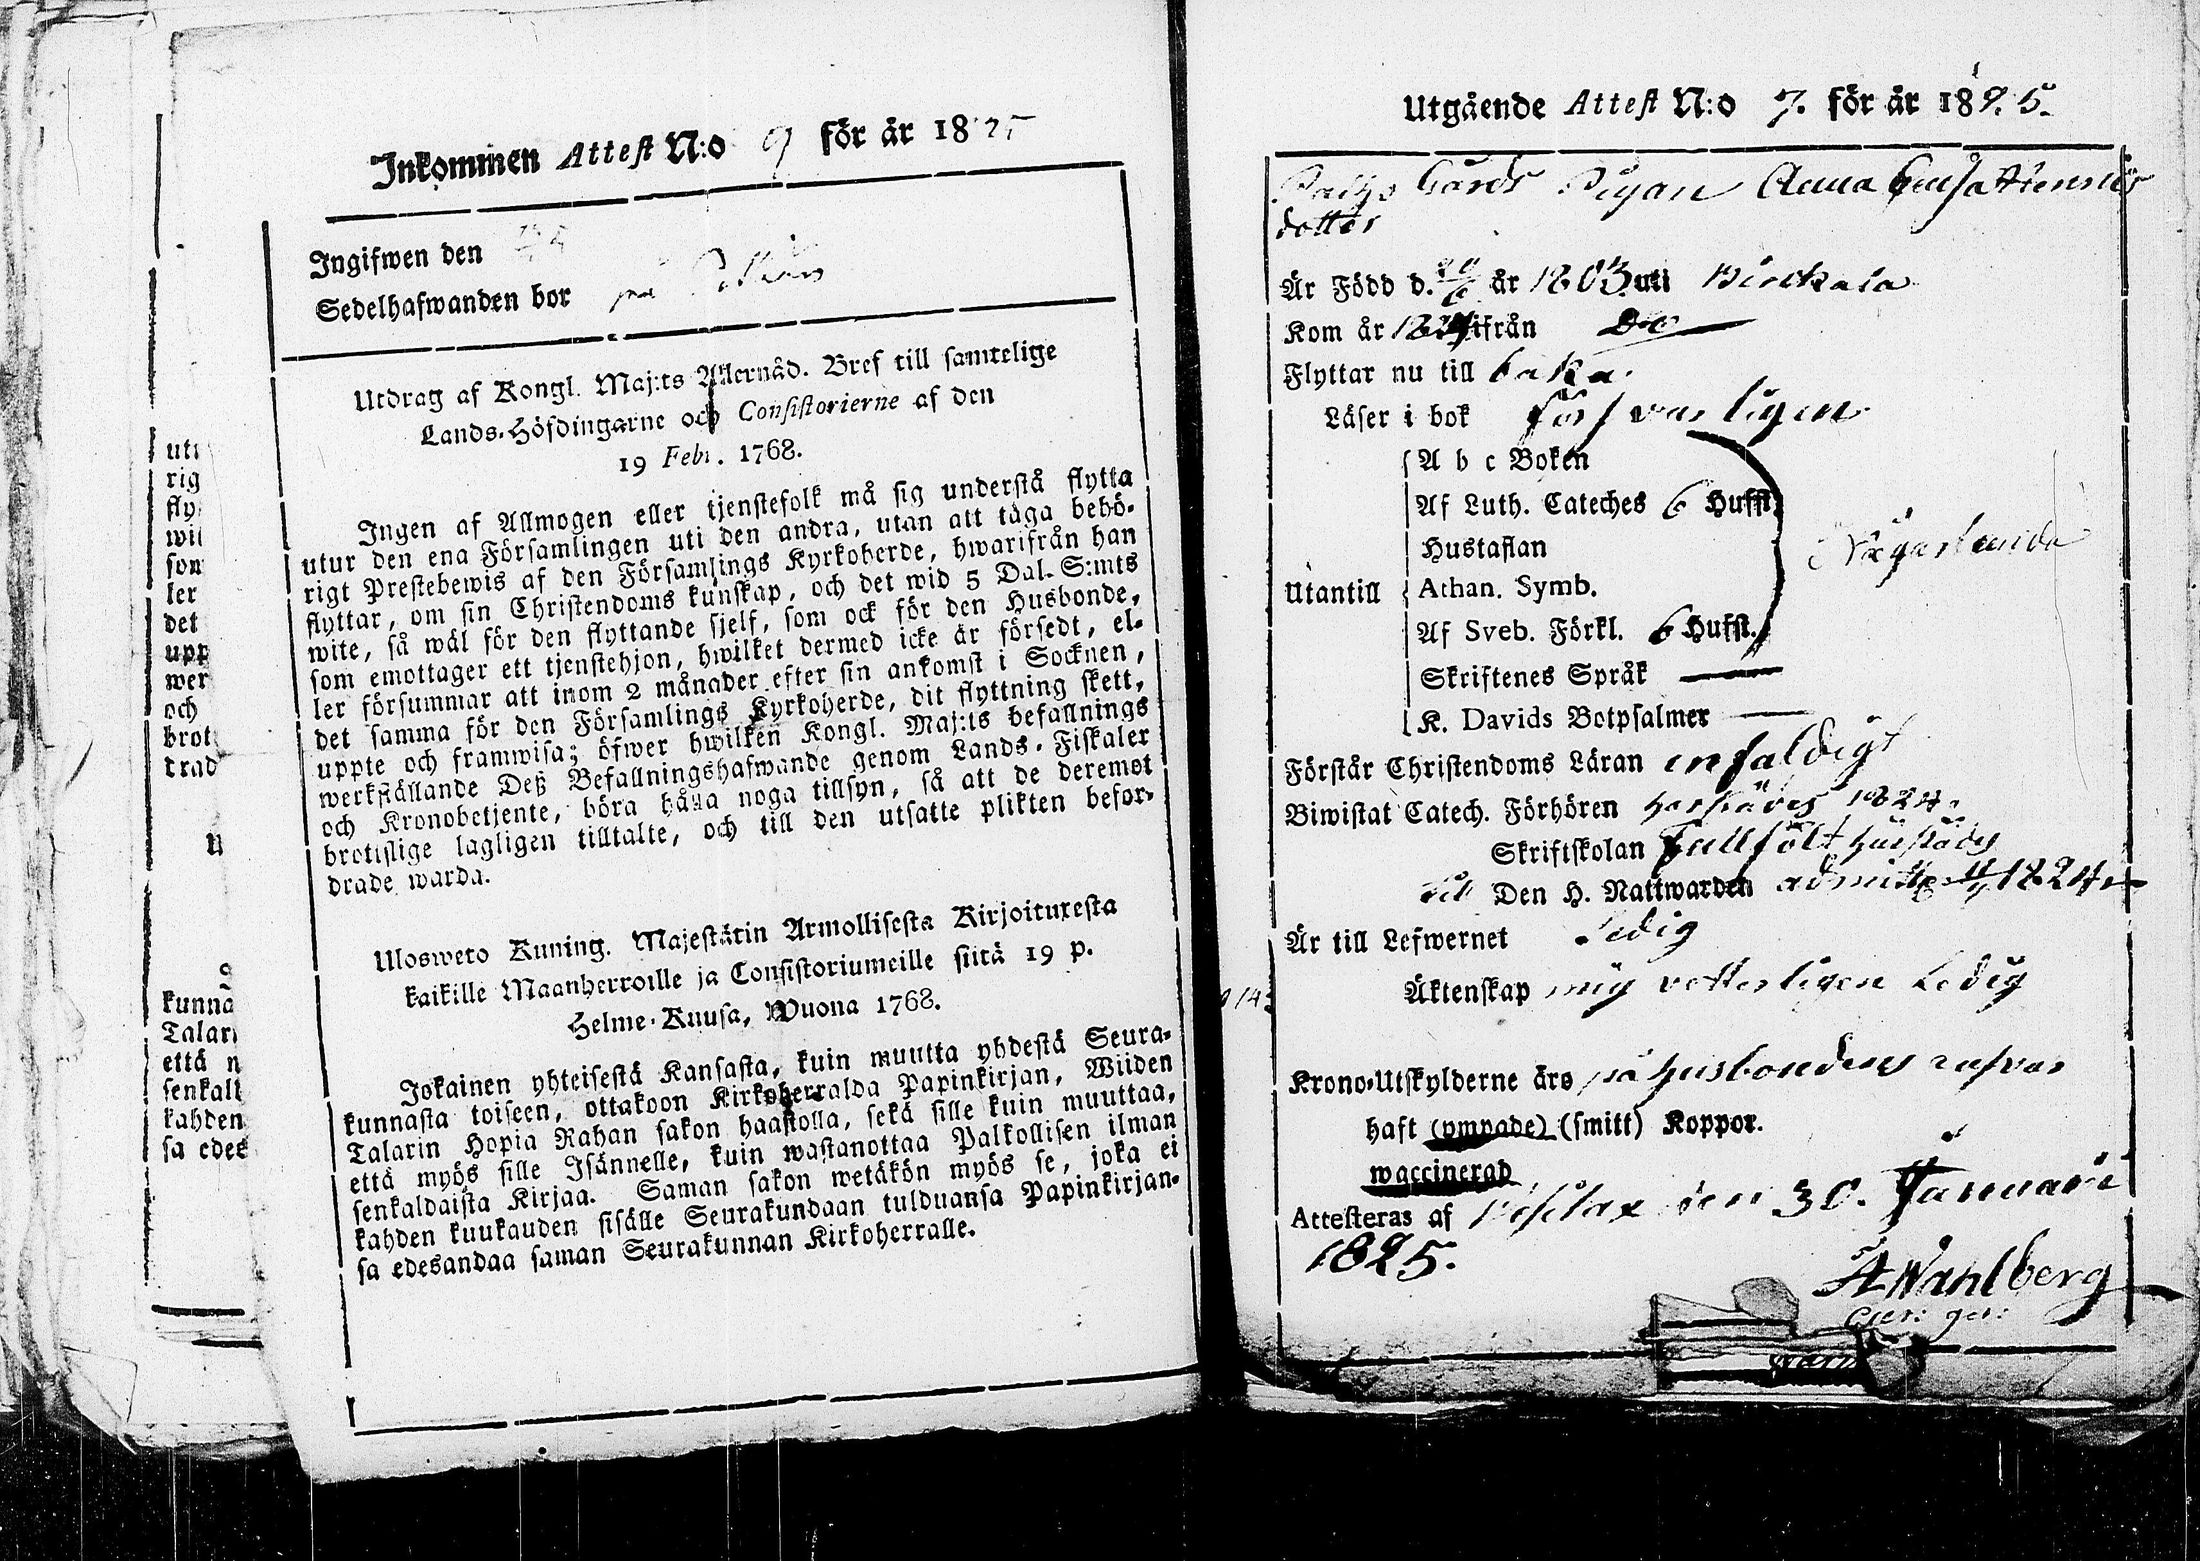 uti
rig
fly
wit
som
ler
det
upp
wer
och
brot
drad
U
kunna
Talari
että n
senkall
kahden
sa edes
Inkommen Attest N:o 9 för år 1825
Ingifwen den
Sedelhafwanden bor på
Utdrag af Kongl. Maj:ts Allernåd. Bref till samtelige
Lands-Höfdingarne och Consistorierne af den
19 Febr. 1768.
Ingen af Allmogen eller tjenstefolk må sig understå flytta
utur den ena Församlingen uti den andra, utan att taga behö-
rigt Prestebewis af den Församlings Kyrkoherde, hwarifrån han
flyttar, om sin Christendoms kunskap, och det wid 5 Dal. S:mts
wite, så wäl för den flyttande sjelf, som ock för den Husbonde,
som emottager ett tjenstehjon, hwilket dermed icke är försedt, el-
ler försummar att inom 2 månader efter sin ankomst i Socknen,
det samma för den Församlings Kyrkoherde, dit flyttning skett,
uppte och framwisa; öfwer hwilken Kongl. Maj:ts befallnings
werkställande Deß Befallningshafwande genom Lands-Fiskaler
och Kronobetjente, böra hålla noga tillsyn, så att de deremot
brottslige lagligen tilltalte, och till den utsatte plikten befor-
drade warda.
Ulosweto Kuning. Majestätin Armollisesta Kirjoituxesta
kaikille Maanherroille ja Consistoriumeille siitä 19 p.
Helme-Kuusa, Wuona 1768.
Jokainen yhteisestä Kansasta, kuin muutta yhdestä Seura-
kunnasta toiseen, ottakoon Kirkoherralda Papinkirjan, Wiiden
Talarin Hopia Rahan sakon haastolla, sekä sille kuin muuttaa,
että myös sille Isännelle, kuin wastanottaa Palkollisen ilman
senkaldaista Kirjaa. Saman sakon wetäkön myös se, joka ei
kahden kuukauden sisälle Seurakundaan tulduansa Papinkirjan-
sa edesandaa saman Seurakunnan Kirkoherralle.
Utgående Attest N:o 7. för år 1825.
Gårds Pigan Anna
dotter
Är Född d. 20/6 år 1803 uti Birckala
Kom år 1824 ifrån D:o
Flyttar nu till baka.
Läser i bok försvarligen
A b c Boken
Af Luth. Cateches 6 Hufst.
Hustaflan
Utantill Athan. Symb.
Af Sveb. Förkl. 6 Hufst.
Skriftenes Språk —
K. Davids Botpsalmer —
Någorlunda
Förstår Christendoms Läran enfaldigt
Biwistat Catech. Förhören härstädes 1824.
Skriftskolan Fullfölt härstädes
till Den H. Nattwarden 1824
Är till Lefwernet Ledig
Äktenskap mig vetterligen Ledig
Krono-Utskylderne äro på husbondens ansvar
haft (ympade) (smitt) Koppor.
waccinerad
Attesteras af den 30. Januarii
1825.
A Wahlberg